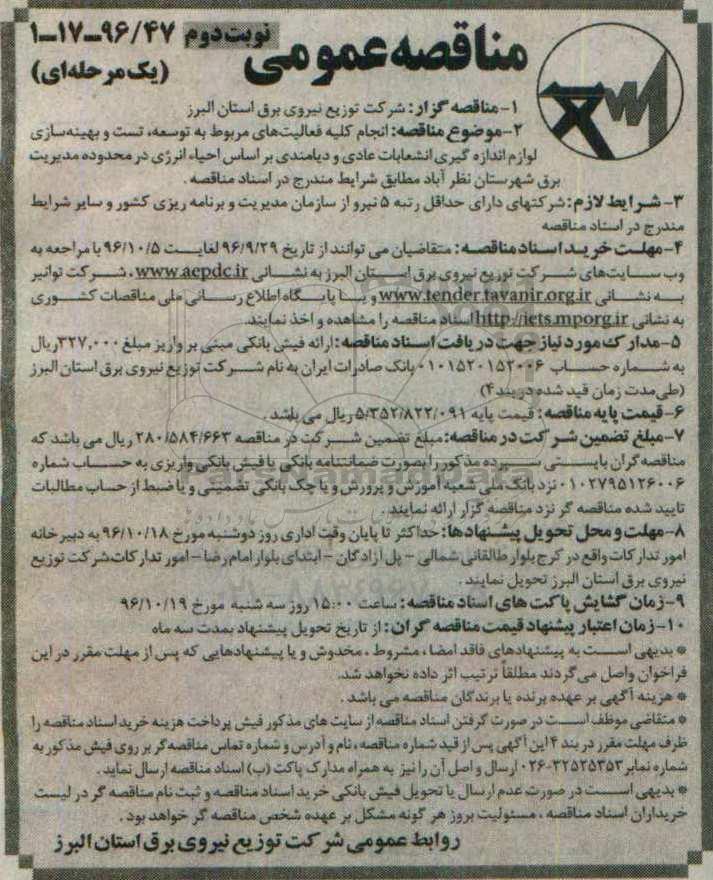 مناقصه عمومی
نوبت دوم ۹۶/۴۷-۱۷-۱
(یک مرحله‌ای)
۱- مناقصه گزار: شرکت توزیع نیروی برق استان البرز
۲- موضوع مناقصه: انجام کلیه فعالیت‌های مربوط به توسعه، تست و بهینه‌سازی
لوازم اندازه گیری انشعابات عادی و دیامندی بر اساس احیاء انرژی در محدوده مدیریت
برق شهرستان نظر آباد مطابق شرایط مندرج در اسناد مناقصه .
۳- شرایط لازم: شرکتهای دارای حداقل رتبه ۵ نیرو از سازمان مدیریت و برنامه ریزی کشور و سایر شرایط
مندرج در اسناد مناقصه
۴- مهلت خرید اسناد مناقصه: متقاضیان می توانند از تاریخ ۹۶/۹/۲۹ لغایت ۹۶/۱۰/۵ با مراجعه به
وب سایت‌های شرکت توزیع نیروی برق استان البرز به نشانی www.aepdc.ir ، شرکت توانیر
به نشانی www.tender.tavanir.org.ir و یا پایگاه اطلاع رسانی ملی مناقصات کشوری
به نشانی http://iets.mporg.ir اسناد مناقصه را مشاهده و اخذ نمایند.
۵- مدارک مورد نیاز جهت دریافت اسناد مناقصه: ارائه فیش بانکی مبنی بر واریز مبلغ ۳۲۷,۰۰۰ ریال
به شماره حساب ۰۱۰۱۵۲۰۱۵۲۰۰۶ بانک صادرات ایران به نام شرکت توزیع نیروی برق استان البرز
(طی مدت زمان قید شده در بند ۴)
۶- قیمت پایه مناقصه: قیمت پایه ۵/۳۵۲/۸۲۲/۰۹۱ ریال می باشد .
۷- مبلغ تضمین شرکت در مناقصه: مبلغ تضمین شرکت در مناقصه ۲۸۰/۵۸۴/۶۶۳ ریال می باشد که
مناقصه گران بایستی سپرده مذکور را بصورت ضمانتنامه بانکی یا فیش بانکی واریزی به حساب شماره
۰۱۰۲۷۹۵۱۲۶۰۰۶ نزد بانک ملی شعبه آموزش و پرورش و یا چک بانکی تضمینی و یا ضبط از حساب مطالبات
تایید شده مناقصه گر نزد مناقصه گزار ارائه نمایند .
۸- مهلت و محل تحویل پیشنهادها: حداکثر تا پایان وقت اداری روز دوشنبه مورخ ۹۶/۱۰/۱۸ به دبیرخانه
امور تدارکات واقع در کرج بلوار طالقانی شمالی - پل آزادگان - ابتدای بلوار امام رضا - امور تدارکات شرکت توزیع
نیروی برق استان البرز تحویل نمایند .
۹- زمان گشایش پاکت های اسناد مناقصه: ساعت ۱۵:۰۰ روز سه شنبه مورخ ۹۶/۱۰/۱۹
۱۰- زمان اعتبار پیشنهاد قیمت مناقصه گران: از تاریخ تحویل پیشنهاد بمدت سه ماه
* بدیهی است به پیشنهادهای فاقد امضاء، مشروط ، مخدوش و یا پیشنهادهایی که پس از مهلت مقرر در این
فراخوان واصل می‌گردند مطلقاً ترتیب اثر داده نخواهد شد.
* هزینه آگهی بر عهده برنده یا برندگان مناقصه می باشد .
* متقاضی موظف است در صورت گرفتن اسناد مناقصه از سایت های مذکور فیش پرداخت هزینه خرید اسناد مناقصه را
ظرف مهلت مقرر در بند ۴ این آگهی پس از قید شماره مناقصه ، نام و آدرس و شماره تماس مناقصه گر بر روی فیش مذکور به
شماره نمابر ۳۲۵۲۵۳۵۳-۰۲۶ ارسال و اصل آن را نیز به همراه مدارک پاکت (ب) اسناد مناقصه ارسال نماید .
* بدیهی است در صورت عدم ارسال یا تحویل فیش بانکی خرید اسناد مناقصه و ثبت نام مناقصه گر در لیست
خریداران اسناد مناقصه ، مسئولیت بروز هر گونه مشکل بر عهده شخص مناقصه گر خواهد بود .
روابط عمومی شرکت توزیع نیروی برق استان البرز